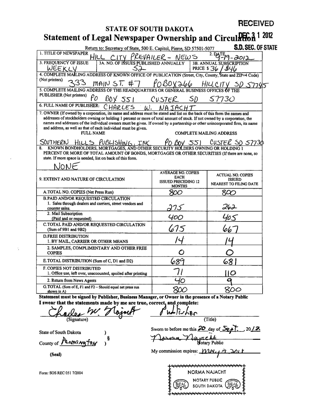 RECEIVED
DEC 31 2012
S.D. SEC. OF STATE
STATE OF SOUTH DAKOTA
Statement of Legal Newspaper Ownership and Circulation
Return to: Secretary of State, 500 E. Capitol, Pierre, SD 57501-5077
1. TITLE OF NEWSPAPER
HILL CITY PREVAILER - NEWS
2. DATE
9-19-2012
3. FREQUENCY OF ISSUE
WEEKLY
3A. NO. OF ISSUES PUBLISHED ANNUALLY
52
3B. ANNUAL SUBSCRIPTION
PRICE $ 36/$46
4. COMPLETE MAILING ADDRESS OF KNOWN OFFICE OF PUBLICATION (Street, City, County, State and ZIP+4 Code)
(Not printers)
333 MAIN ST #7 PO BOX 266 HILL CITY SD 57745
5. COMPLETE MAILING ADDRESS OF THE HEADQUARTERS OR GENERAL BUSINESS OFFICES OF THE
PUBLISHER (Not printers)
PO BOX 551 CUSTER SD 57730
6. FULL NAME OF PUBLISHER:
CHARLES W. NAJACHT
7. OWNER (If owned by a corporation, its name and address must be stated and list on the back of this form the names and
addresses of stockholders owning or holding 1 percent or more of total amount of stock. If not owned by a corporation, the
names and addresses of the individual owners must be given. If owned by a partnership or other unincorporated firm, its name
and address, as well as that of each individual must be given.
FULL NAME COMPLETE MAILING ADDRESS
SOUTHERN HILLS PUBLISHING, INC PO BOX 551 CUSTER SD 57730
8. KNOWN BONDHOLDERS, MORTGAGEES, AND OTHER SECURITY HOLDERS OWNING OR HOLDING 1
PERCENT OR MORE OF TOTAL AMOUNT OF BONDS, MORTGAGES OR OTHER SECURITIES (If there are none, so
state. If more space is needed, list on back of this form.
NONE
9. EXTENT AND NATURE OF CIRCULATION
AVERAGE NO. COPIES
EACH
ISSUED PRECEDING 12
MONTHS
ACTUAL NO. COPIES
ISSUED
NEAREST TO FILING DATE
A. TOTAL NO. COPIES (Net Press Run) 800 800
B. PAID AND/OR REQUESTED CIRCULATION
1. Sales through dealers and carriers, street vendors and
counter sales. 275 262
2. Mail Subscription
(Paid and or requested) 400 405
C. TOTAL PAID AND/OR REQUESTED CIRCULATION
(Sum of 9B1 and 9B2) 675 667
D. FREE DISTRIBUTION
1. BY MAIL, CARRIER OR OTHER MEANS 14 14
2. SAMPLES, COMPLIMENTARY AND OTHER FREE
COPIES 0 0
E. TOTAL DISTRIBUTION (Sum of C, D1 and D2) 689 681
F. COPIES NOT DISTRIBUTED
1. Office use, left over, unaccounted, spoiled after printing 71 110
2. Return from News Agents 40 9
G. TOTAL (Sum of E, F1 and F2 - Should equal net press run
shown in A) 800 800
Statement must be signed by Publisher, Business Manager, or Owner in the presence of a Notary Public
I swear that the statements made by me are true, correct, and complete:
Charles W. Najacht Publisher
(Signature) (Title)
State of South Dakota )
County of Pennington ) §
(Seal)
Sworn to before me this 20 day of Sept, 2012
Norma Najacht
Notary Public
My commission expires:
NORMA NAJACHT
NOTARY PUBLIC
SOUTH DAKOTA
SEAL
SEAL